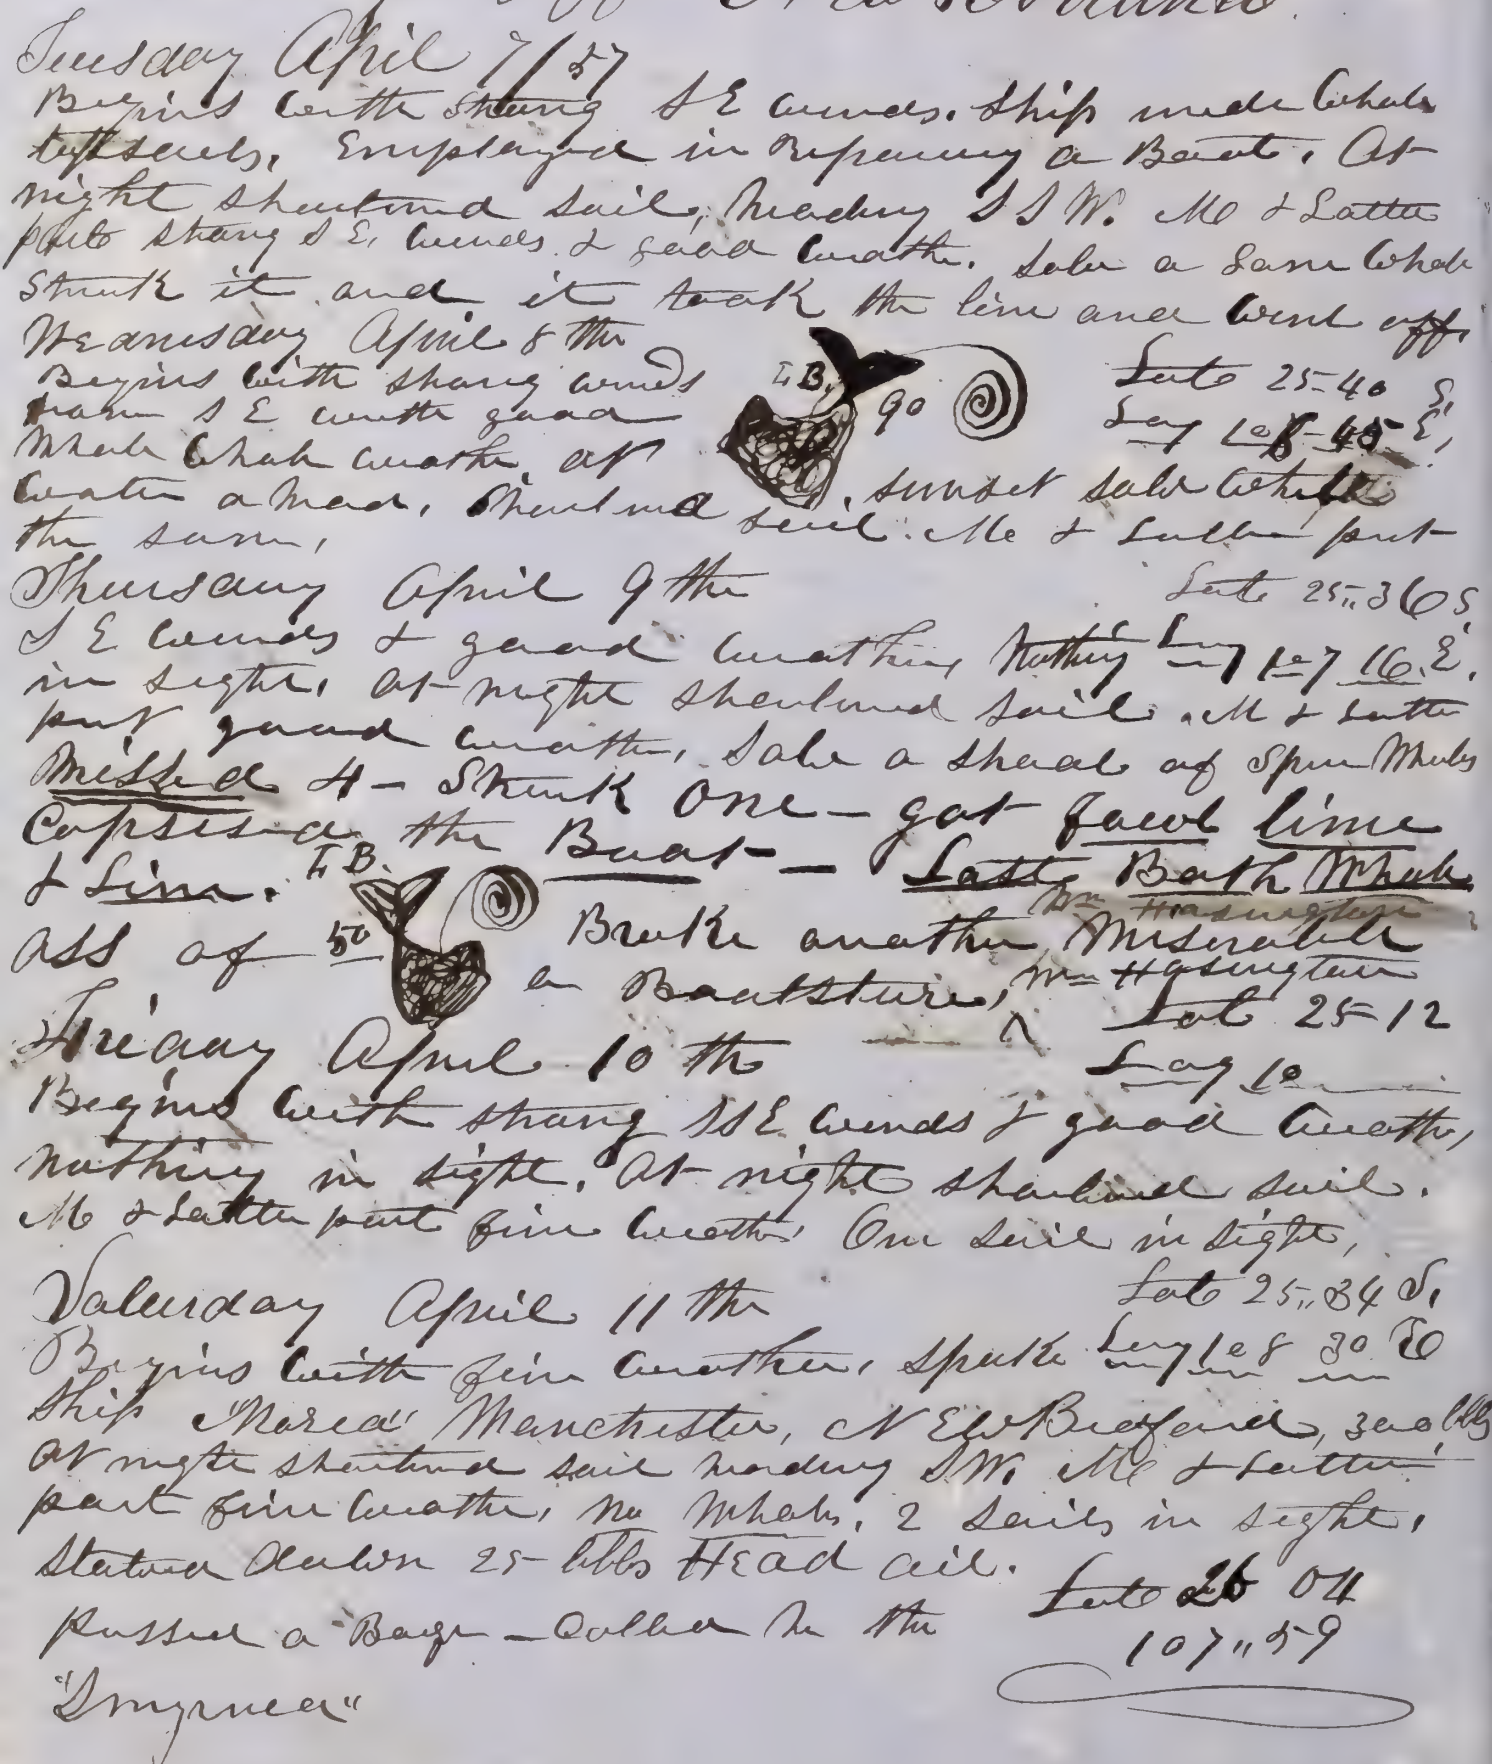 off New Holland.
Tuesday April 7/57
Begins with strong S E winds. Ship under Whole
topsails. Employed in Repairing a Boat. At
night shortened sail, heading S S W. M & Latter
parts strong S E, winds & good weather. Saw a Lone Whale
Struck it and it took the line and went off.
Wednesday April 8 th
Begins with strong winds
from S E with good
Whale Whale weather. at
L. B. 90
Late 25-40 S,
Long 108-45 E,
sunset saw White
water a head, Shortened sail. M & Latter part
the same,
Thursday April 9 th
Late 25,,36 S,
S E winds & good weather, Nothing
Long 107 16. E.
in sight, at night shortened sail. M & Latter
part good weather, Saw a shoal of Sperm Whales
Missed 4 - Struck One - got fowl line
Capsised the Boat - Lost Both Whale
& Line. L. B. 50
Wm Hasington
Ass of Broke another Miserable
a Boatsturer, Wm Hasington
Lat 25-12
Friday April 10 th
Long 10
Begins with strong SSE winds & good weather,
Nothing in sight. At night shortened sail.
M & Latter part fine weather One sail in sight,
Saturday April 11 th
Late 25,,34 S,
Begins with fine weather, spoke
Long 108 30 E
Ship "Maria" Manchester, N EW Bedford, 300 bbls
At night shortened sail heading SW. M & Latter
part fine weather, no Whales, 2 sails in sight,
Stowed down 25 bbls HEad oil.
Late 26 04
passed a Barge - Called her the
107,,59
"Smyrnea"